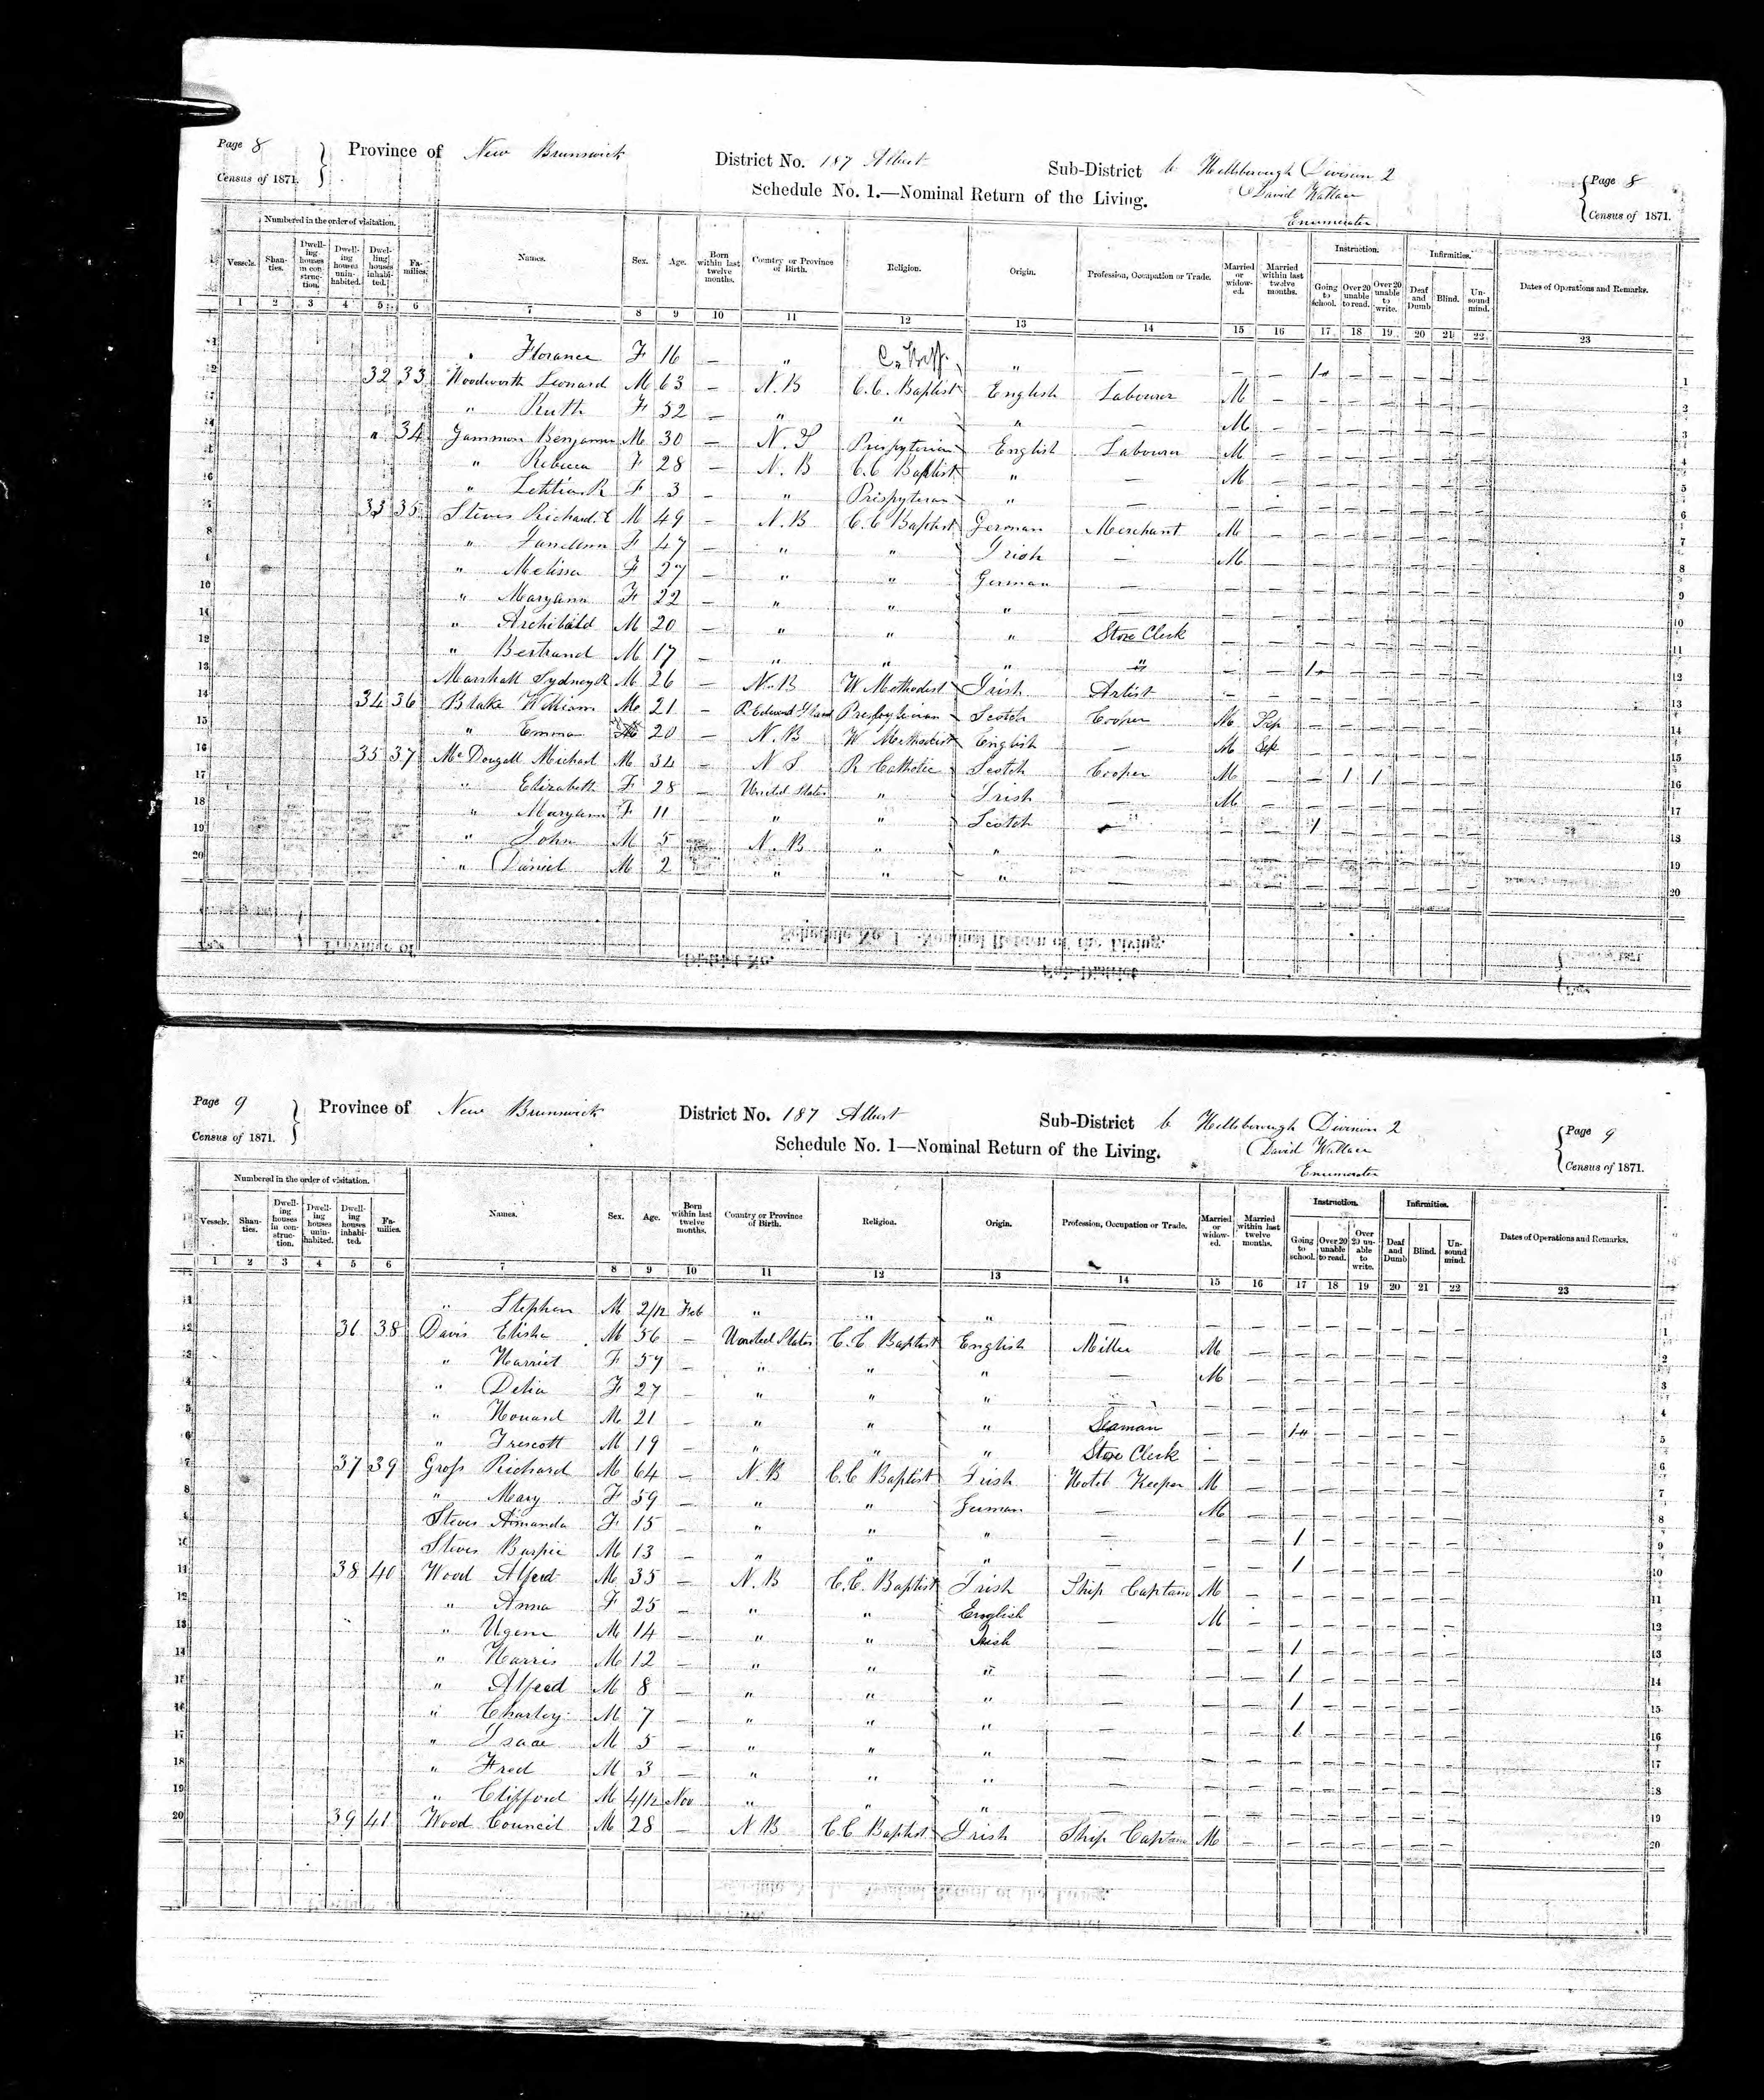 Page 8
Census of 1871.
Province of New Brunswick
District No. 187 Albert
Sub-District b Hillsborough Division 2
David Wallace
Enumerator
Page 8
Census of 1871.
Schedule No. 1.—Nominal Return of the Living.
Numbered in the order of visitation.
Vessels. Shanties. Dwelling houses in construction. Dwelling houses uninhabited. Dwelling houses inhabited. Families. Names. Sex. Age. Born within last twelve months. Country or Province of Birth. Religion. Origin. Profession, Occupation or Trade. Married or widowed. Married within last twelve months. Instruction. Going to school. Over 20 unable to read. Over 20 unable to write. Infirmities. Deaf and Dumb Blind. Unsound mind. Dates of Operations and Remarks.
1 2 3 4 5 6 7 8 9 10 11 12 13 14 15 16 17 18 19 20 21 22 23
1 " Florance F 16 — " " — — — — — — — — 1
2 32 33 Woodworth Leonard M 63 — N.B C.C. Baptist English Labourer M — — — — — — — 2
3 " Ruth F 52 — " " " — M — — — — — — — 3
4 " 34 Gammon Benjamin M 30 — N.S Presbyterian English Labourer M — — — — — — — 4
5 " Rebecca F 28 — N.B C.C Baptist " — M — — — — — — — 5
6 " Letitia R F 3 — " Presbyteran " — — — — — — — — — 6
7 33 35 Steves Richard E M 49 — N.B C.C Baptist German Merchant M — — — — — — — 7
8 " JaneAnn F 47 — " " Irish — M — — — — — — — 8
9 " Melissa F 27 — " " German — — — — — — — — — 9
10 " Maryann F 22 — " " " — — — — — — — — — 10
11 " Archibald M 20 — " " " Store Clerk — — — — — — — — 11
12 " Bertrand M 17 — " " " " — — — — — — — 12
13 Marshall Sydney R M 26 — N.B W Methodist Irish Artist — — — — — — — — 13
14 34 36 Blake William M 21 — P. Edward Island Presbyterian Scotch Cooper M Sep — — — — — — 14
15 " Emma 20 — N.B W Methodist English — M Sep — — — — — — 15
16 35 37 McDougall Michael M 34 — N S R Catholic Scotch Cooper M — — 1 1 — — — 16
17 " Elizabeth F 28 — United States " Irish — M — — — — — — — 17
18 " Maryann F 11 " " Scotch — — 1 — — — — — 18
19 " John M 5 N.B " " — — — — — — — — — 19
20 " Daniel M 2 " " " — — — — — — — — — 20
Page 9
Census of 1871.
Province of New Brunswick
District No. 187 Albert
Sub-District b Hillsborough Division 2
David Wallace
Enumerator
Page 9
Census of 1871.
Schedule No. 1—Nominal Return of the Living.
Numbered in the order of visitation.
Vessels. Shanties. Dwelling houses in construction. Dwelling houses uninhabited. Dwelling houses inhabited. Families. Names. Sex. Age. Born within last twelve months. Country or Province of Birth. Religion. Origin. Profession, Occupation or Trade. Married or widowed. Married within last twelve months. Instruction. Going to school. Over 20 unable to read. Over 20 unable to write. Infirmities. Deaf and Dumb Blind. Unsound mind. Dates of Operations and Remarks.
1 2 3 4 5 6 7 8 9 10 11 12 13 14 15 16 17 18 19 20 21 22 23
1 " Stephen M 2/12 Feb " " " — — — — — — — — — 1
2 36 38 Davis Elisha M 56 — United States C.C Baptist English Miller M — — — — — — — 2
3 " Harriet F 57 — " " " — M — — — — — — — 3
4 " Delia F 27 — " " " — — — — — — — — — 4
5 " Howard M 21 — " " " Seaman — — — — — — — 5
6 " Trescott M 19 — " " " Store Clerk — — — — — — — — 6
7 37 39 Gross Richard M 64 — N.B C.C Baptist Irish Hotel Keeper M — — — — — — — 7
8 " Mary F 59 — " " German — M — — — — — — — 8
9 Steves Amanda F 15 — " " " — — — 1 — — — — — 9
10 Steves Burpee M 13 — " " " — — — 1 — — — — — 10
11 38 40 Wood Alfred M 35 — N.B C.C. Baptist Irish Ship Captain M — — — — — — — 11
12 " Anna F 25 — " " English — M — — — — — — — 12
13 " Ugene M 14 — " " Irish — — — 1 — — — — — 13
14 " Harris M 12 — " " " — — — 1 — — — — — 14
15 " Alfred M 8 — " " " — — — 1 — — — — — 15
16 " Charley M 7 — " " " — — — 1 — — — — — 16
17 " Isaac M 5 — " " " — — — — — — — — — 17
18 " Fred M 3 — " " " — — — — — — — — — 18
19 " Clifford M 4/12 Nov " " " — — — — — — — — — 19
20 39 41 Wood Council M 28 — N B C.C Baptist Irish Ship Captain M — — — — — — — 20